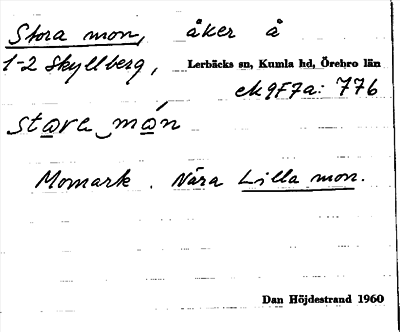 Stora mon, åker å
1-2 Skyllberg, Lerbäcks sn, Kumla hd, Örebro län
ek 9F7a: 776
stɷra mɷ́n
Momark. Nära Lilla mon.
Dan Höjdestrand 1960